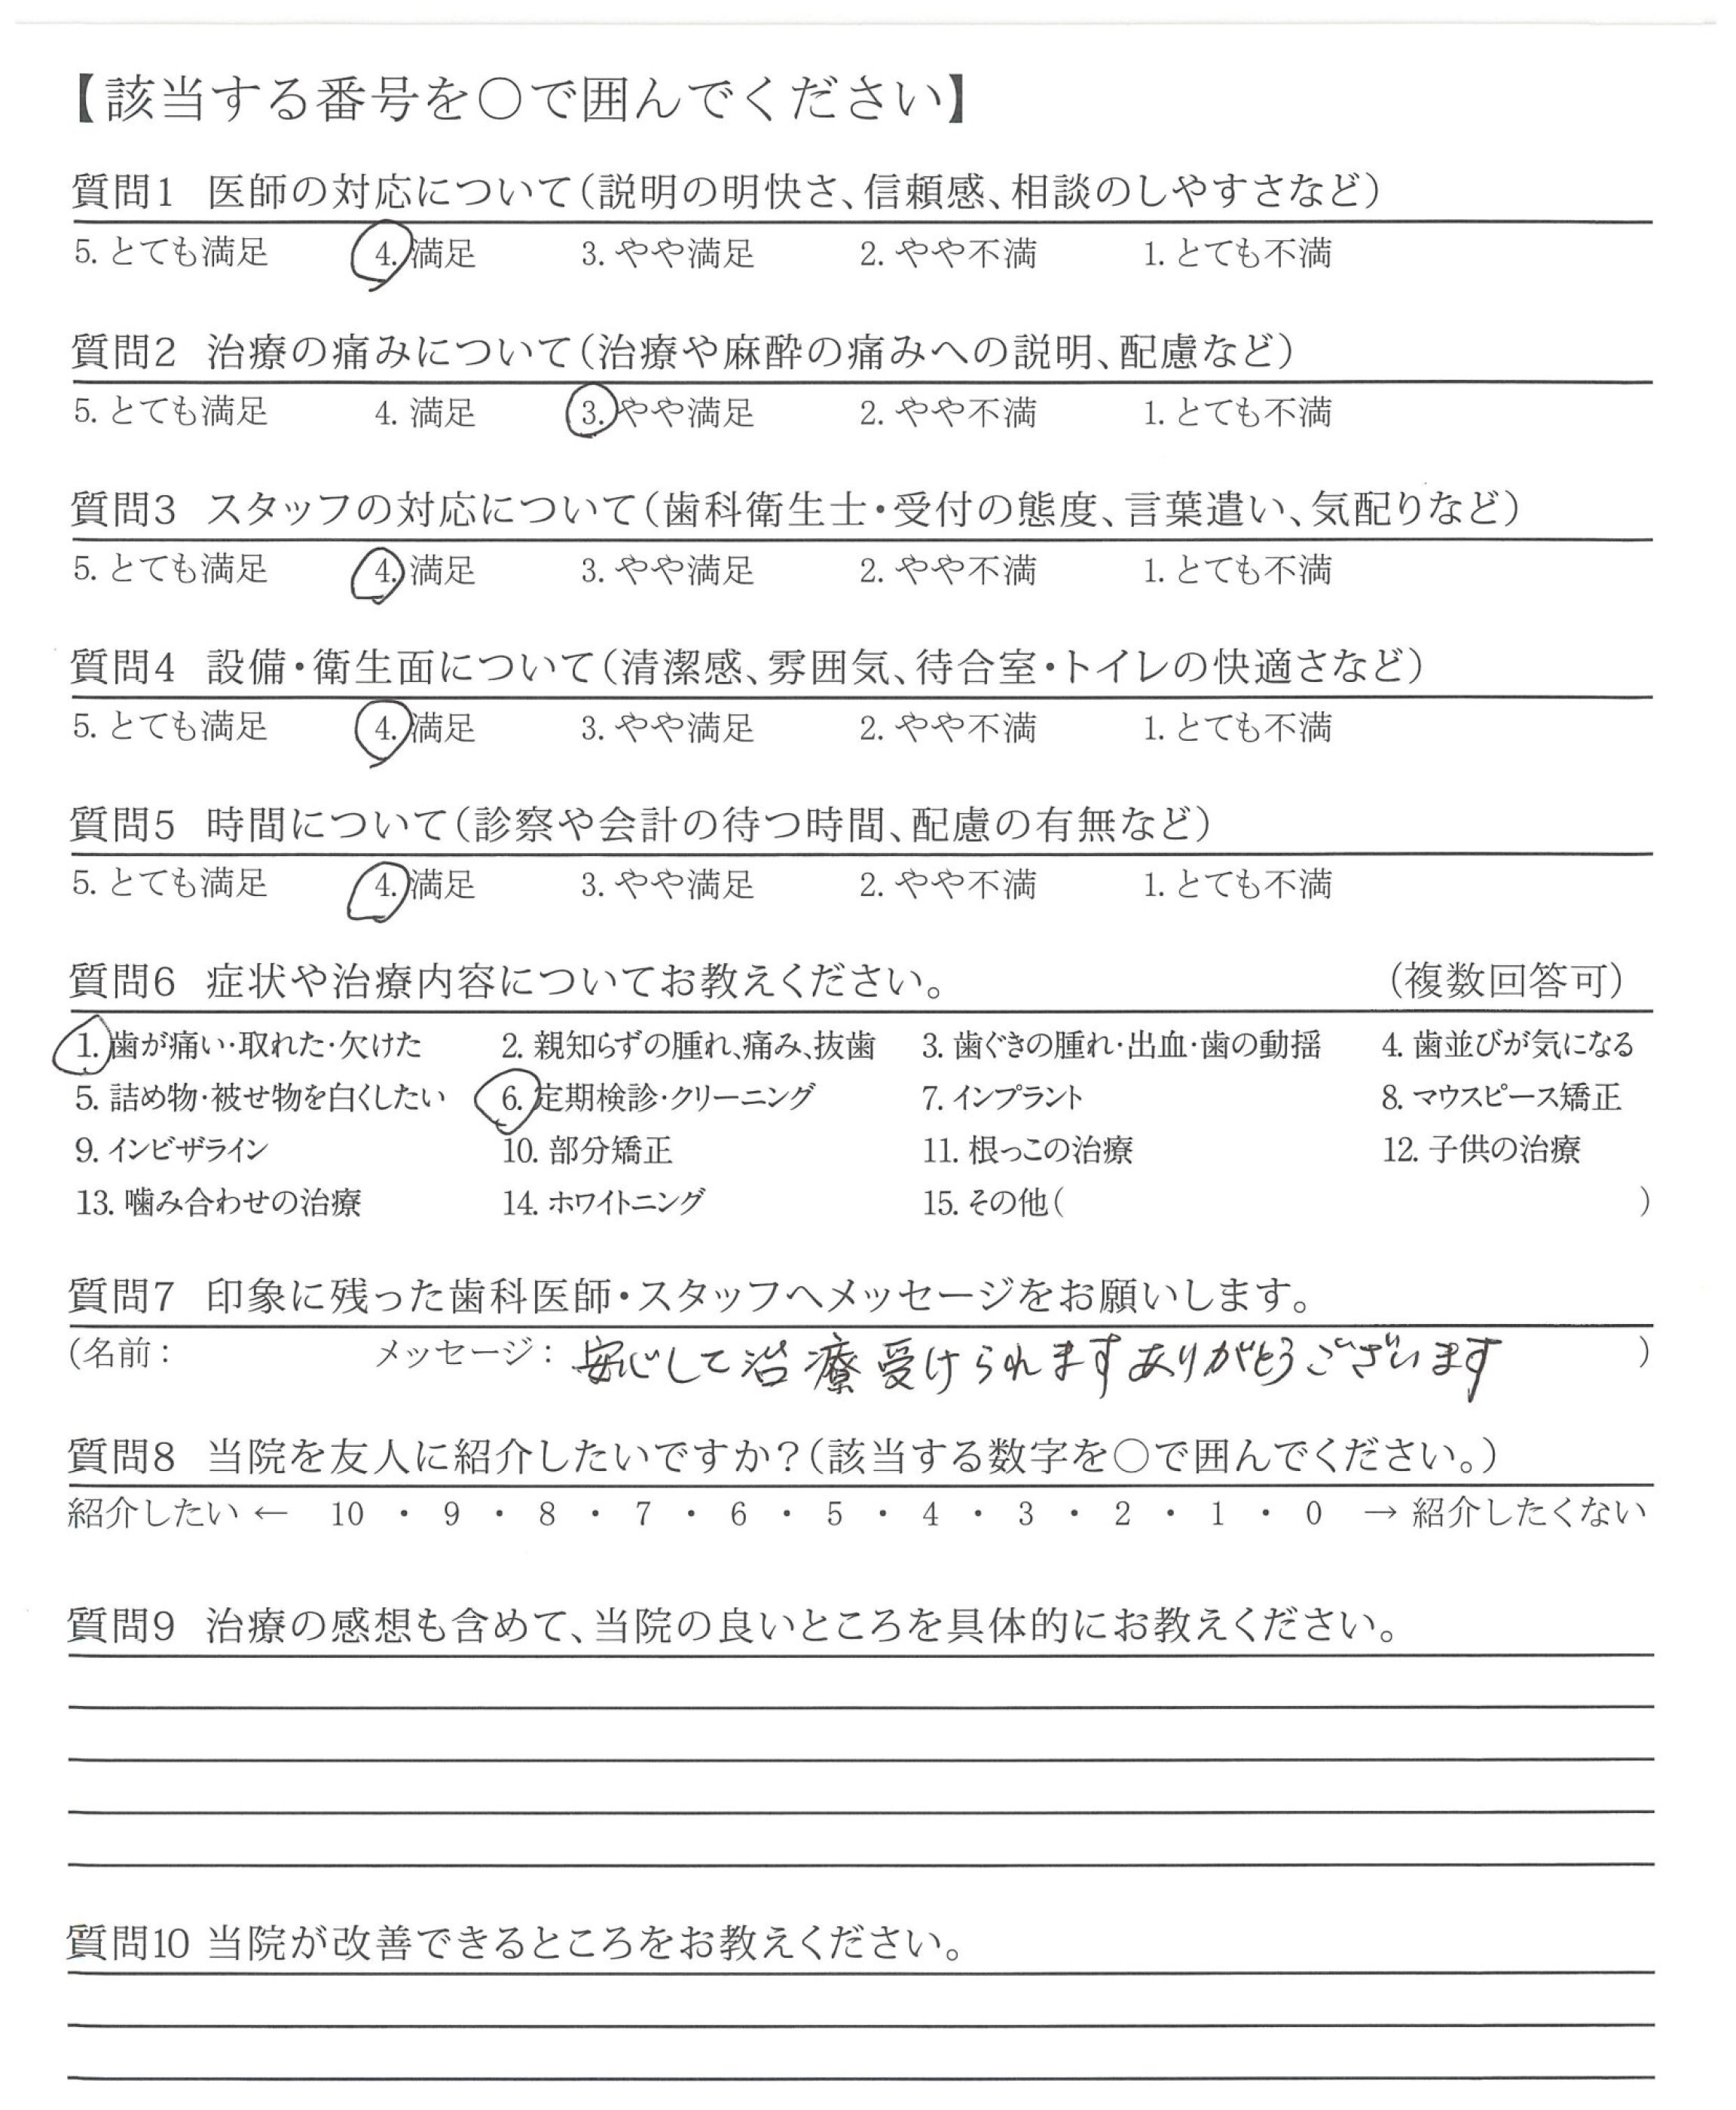 【該当する番号を○で囲んでください】
質問1 医師の対応について（説明の明快さ、信頼感、相談のしやすさなど）
5. とても満足 4. 満足 3. やや満足 2. やや不満 1. とても不満
質問2 治療の痛みについて（治療や麻酔の痛みへの説明、配慮など）
5. とても満足 4. 満足 3. やや満足 2. やや不満 1. とても不満
質問3 スタッフの対応について（歯科衛生士・受付の態度、言葉遣い、気配りなど）
5. とても満足 4. 満足 3. やや満足 2. やや不満 1. とても不満
質問4 設備・衛生面について（清潔感、雰囲気、待合室・トイレの快適さなど）
5. とても満足 4. 満足 3. やや満足 2. やや不満 1. とても不満
質問5 時間について（診察や会計の待つ時間、配慮の有無など）
5. とても満足 4. 満足 3. やや満足 2. やや不満 1. とても不満
質問6 症状や治療内容についてお教えください。 （複数回答可）
1. 歯が痛い・取れた・欠けた 2. 親知らずの腫れ、痛み、抜歯 3. 歯ぐきの腫れ・出血・歯の動揺 4. 歯並びが気になる
5. 詰め物・被せ物を白くしたい 6. 定期検診・クリーニング 7. インプラント 8. マウスピース矯正
9. インビザライン 10. 部分矯正 11. 根っこの治療 12. 子供の治療
13. 噛み合わせの治療 14. ホワイトニング 15. その他（ ）
質問7 印象に残った歯科医師・スタッフへメッセージをお願いします。
（名前： メッセージ： 安心して治療受けられますありがとうございます ）
質問8 当院を友人に紹介したいですか？（該当する数字を○で囲んでください。）
紹介したい ← 10 ・ 9 ・ 8 ・ 7 ・ 6 ・ 5 ・ 4 ・ 3 ・ 2 ・ 1 ・ 0 → 紹介したくない
質問9 治療の感想も含めて、当院の良いところを具体的にお教えください。
質問10 当院が改善できるところをお教えください。